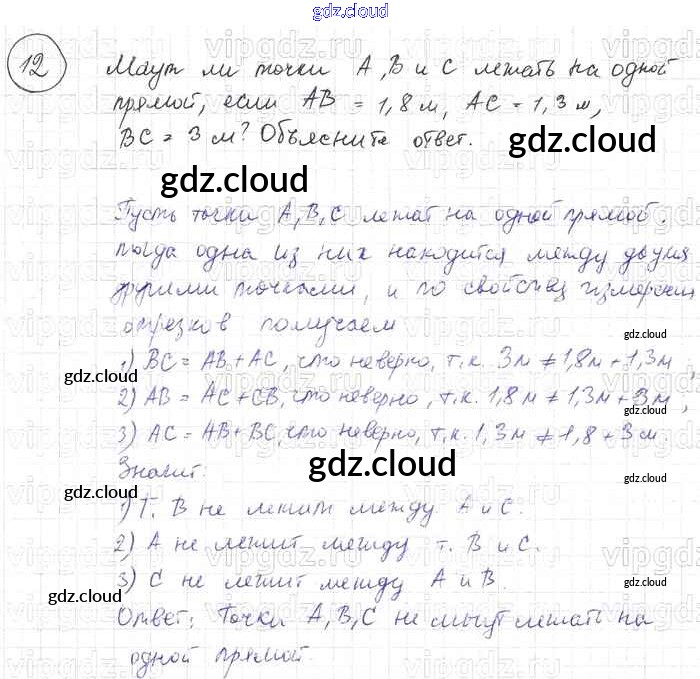 gdz.cloud
12 Могут ли точки A, B и C лежать на одной
прямой, если AB = 1,8 м, AC = 1,3 м,
BC = 3 м? Объясните ответ.
gdz.cloud
gdz.cloud
Пусть точки A, B, C лежат на одной прямой.
тогда одна из них находится между двумя
другими точками, и по свойству измерения
отрезков получаем
gdz.cloud
1) BC = AB + AC, что неверно, т.к. 3м ≠ 1,8м + 1,3м,
gdz.cloud
2) AB = AC + CB, что неверно, т.к. 1,8 м ≠ 1,3м + 3м,
gdz.cloud
3) AC = AB + BC, что неверно, т.к. 1,3м ≠ 1,8 + 3 см
Значит:
gdz.cloud
gdz.cloud
gdz.cloud
1) Т. B не лежит между A и C.
2) A не лежит между т. B и C.
3) C не лежит между A и B.
gdz.cloud
gdz.cloud
Ответ: Точки A, B, C не могут лежать на
одной прямой.